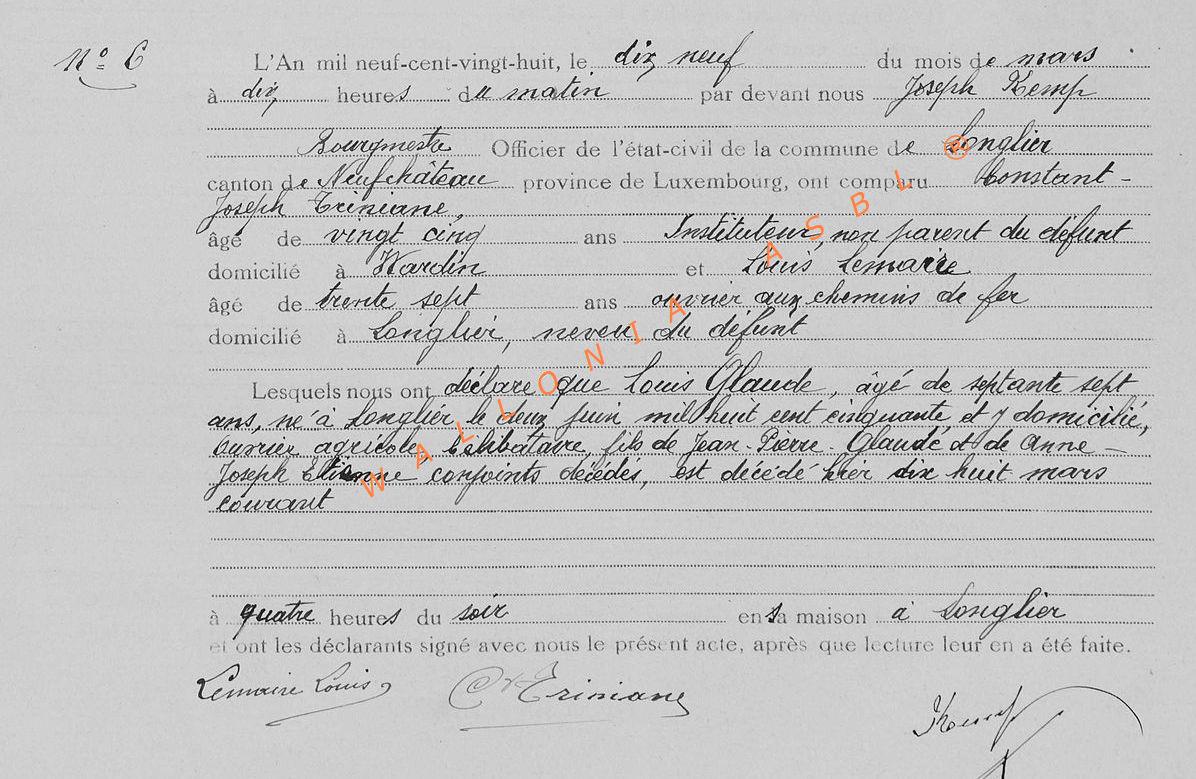 N° 6
L'An mil neuf-cent-vingt-huit, le dix neuf du mois de mars
à dix heures du matin par devant nous Joseph Kemp
Bourgmestre Officier de l'état-civil de la commune de Longlier
canton de Neufchâteau province de Luxembourg, ont comparu Constant-
Joseph Triniane,
âgé de vingt cinq ans Instituteur, non parent du défunt
domicilié à Wardin et Louis Lemaire
âgé de trente sept ans ouvrier aux chemins de fer
domicilié à Longlier, neveu du défunt
Lesquels nous ont déclaré que Louis Glaude, âgé de septante sept
ans, né à Longlier le deux juin mil huit cent cinquante et y domicilié,
ouvrier agricole, célibataire, fils de Jean-Pierre Glaude et de Anne-
Joseph Etienne conjoints décédés, est décédé hier dix huit mars
courant
à quatre heures du soir en sa maison à Longlier
et ont les déclarants signé avec nous le présent acte, après que lecture leur en a été faite.
Lemaire Louis Triniane
Kemp
WALLONIA ASBL ©